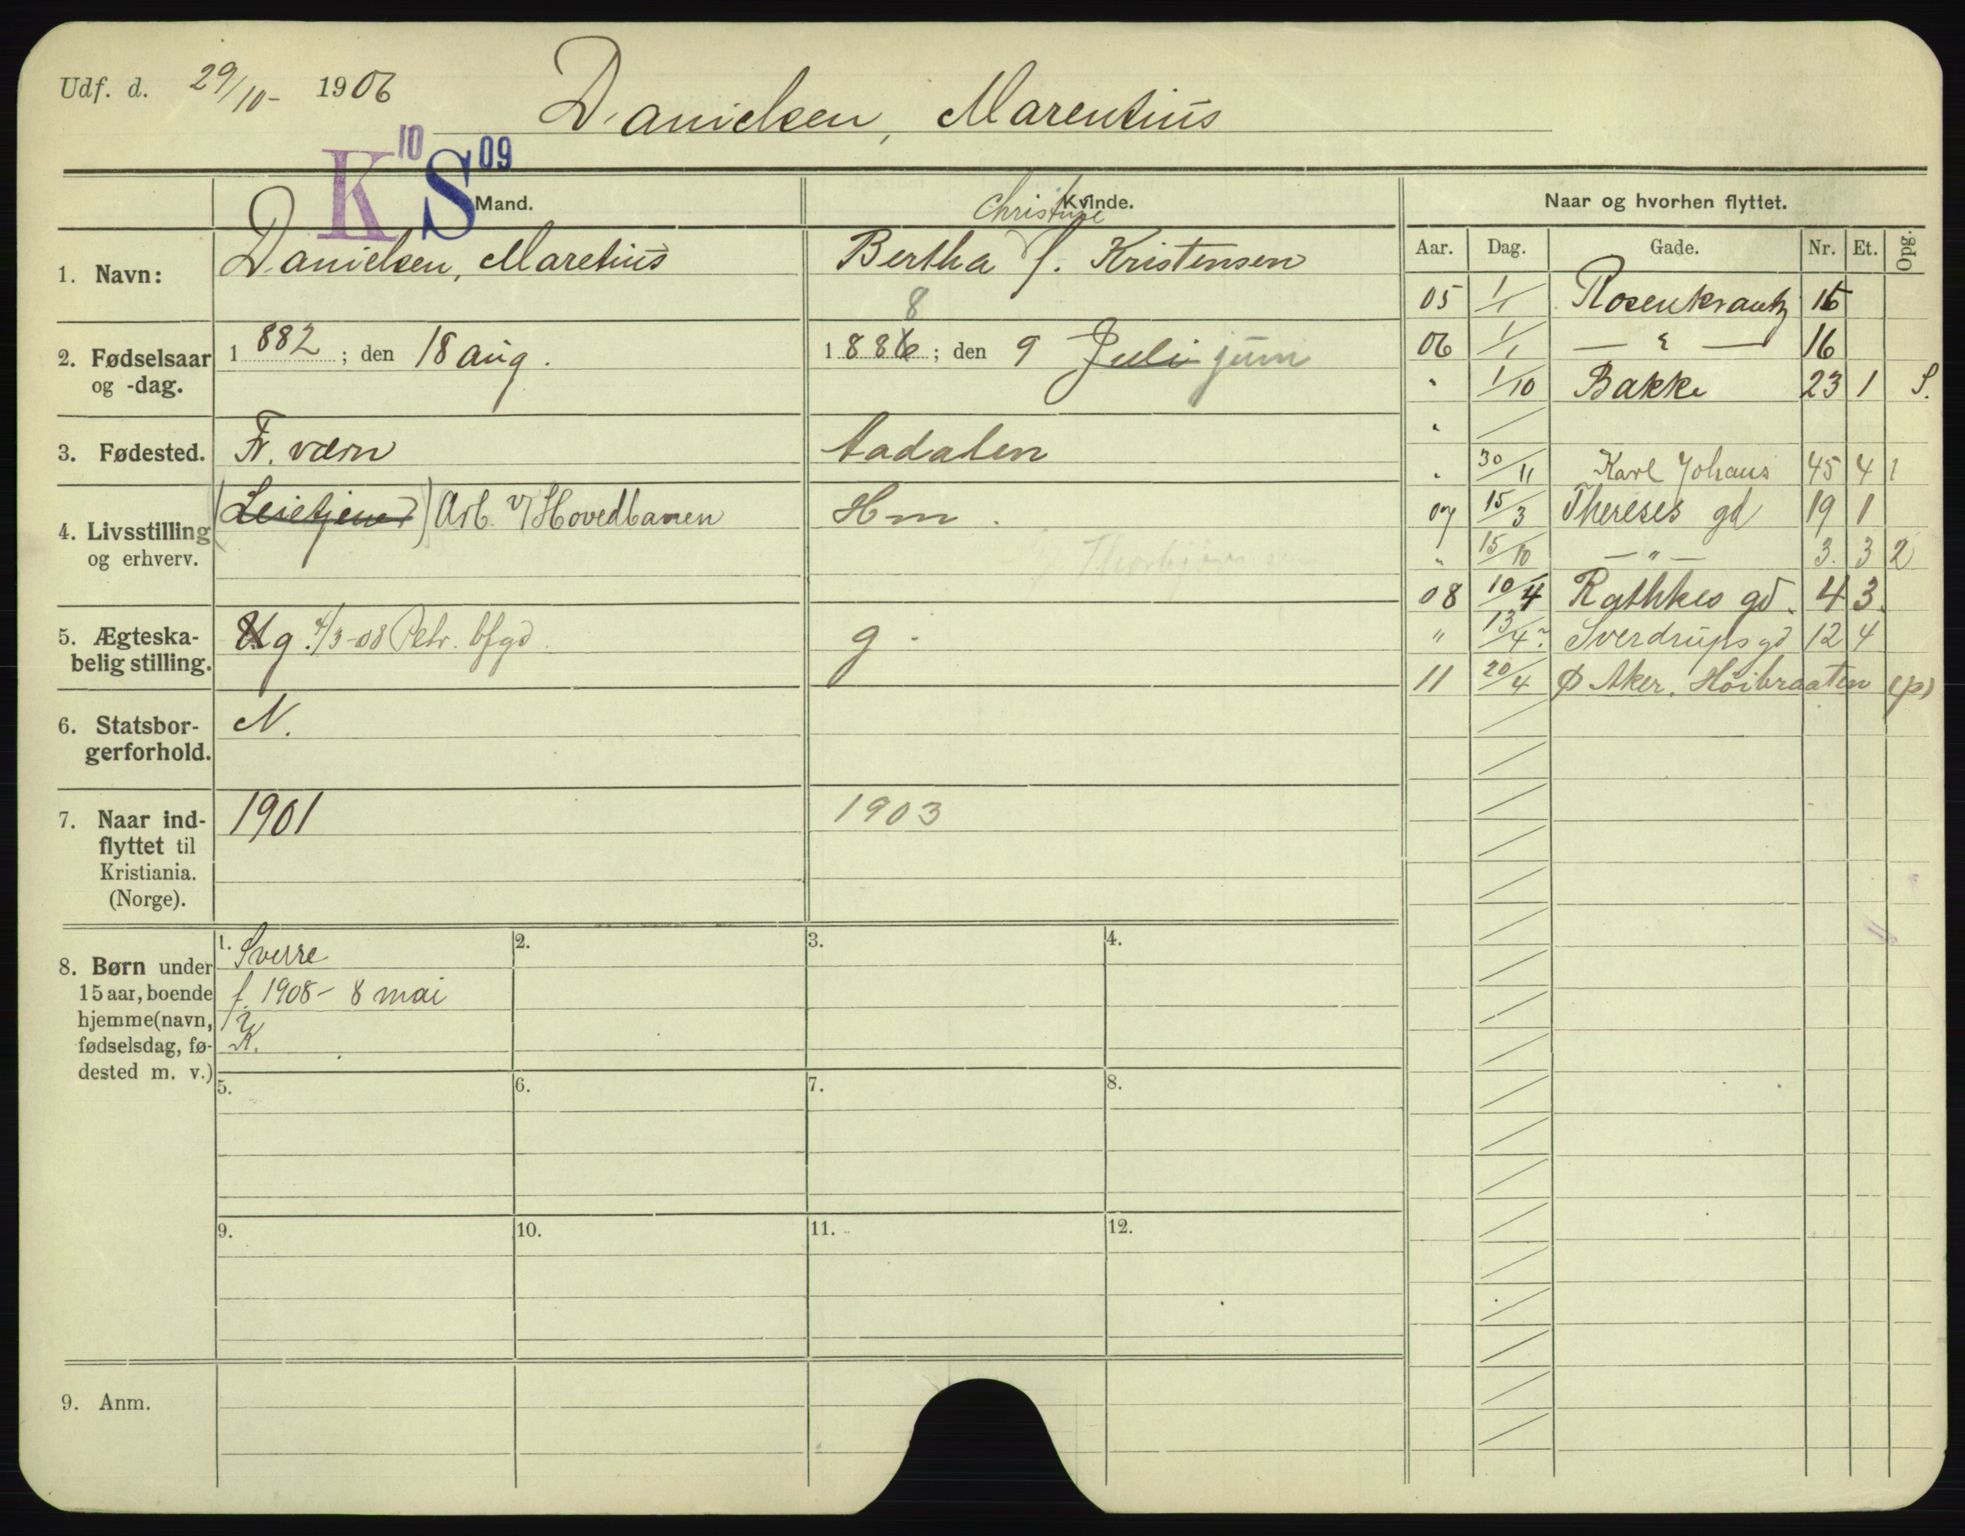 Udf. d. 29/10- 1906
Danielsen, Marentius
K 10 S 09
Mand.
Kvinde.
Naar og hvorhen flyttet.
Aar. Dag. Gade. Nr. Et. Opg.
1. Navn:
Danielsen, Maretius
Christine
Bertha f. Kristensen
2. Fødselsaar
og -dag.
1882; den 18 aug.
8
1886; den 9 Juli juni
3. Fødested.
Fr. værn
Aadalen
4. Livsstilling
og erhverv.
(Leietjener) Arb. v/Hovedbanen
Hm.
5. Ægteska-
belig stilling.
Ug. 4/3-08 Petr. bfgd.
g.
6. Statsbor-
gerforhold.
N.
7. Naar ind-
flyttet til
Kristiania.
(Norge).
1901
1903
8. Børn under
15 aar, boende
hjemme (navn,
fødselsdag, fø-
dested m. v.)
1. Sverre
f. 1908 - 8 mai
K.
2.
3.
4.
5.
6.
7.
8.
9.
10.
11.
12.
9. Anm.
05 1/1 Rosenkrantz 16
06 1/1 — " — 16
" 1/10 Bakke 23 1 S.
"
" 30/11 Karl Johans 45 4 1
07 15/3 Thereses gd 19 1
" 15/10 — " — 3. 3 2
08 10/4 Rathkes gd. 4 3.
" 13/4 Sverdrups gd 12 4
11 20/4 Ø Aker. Höibraaten (p)